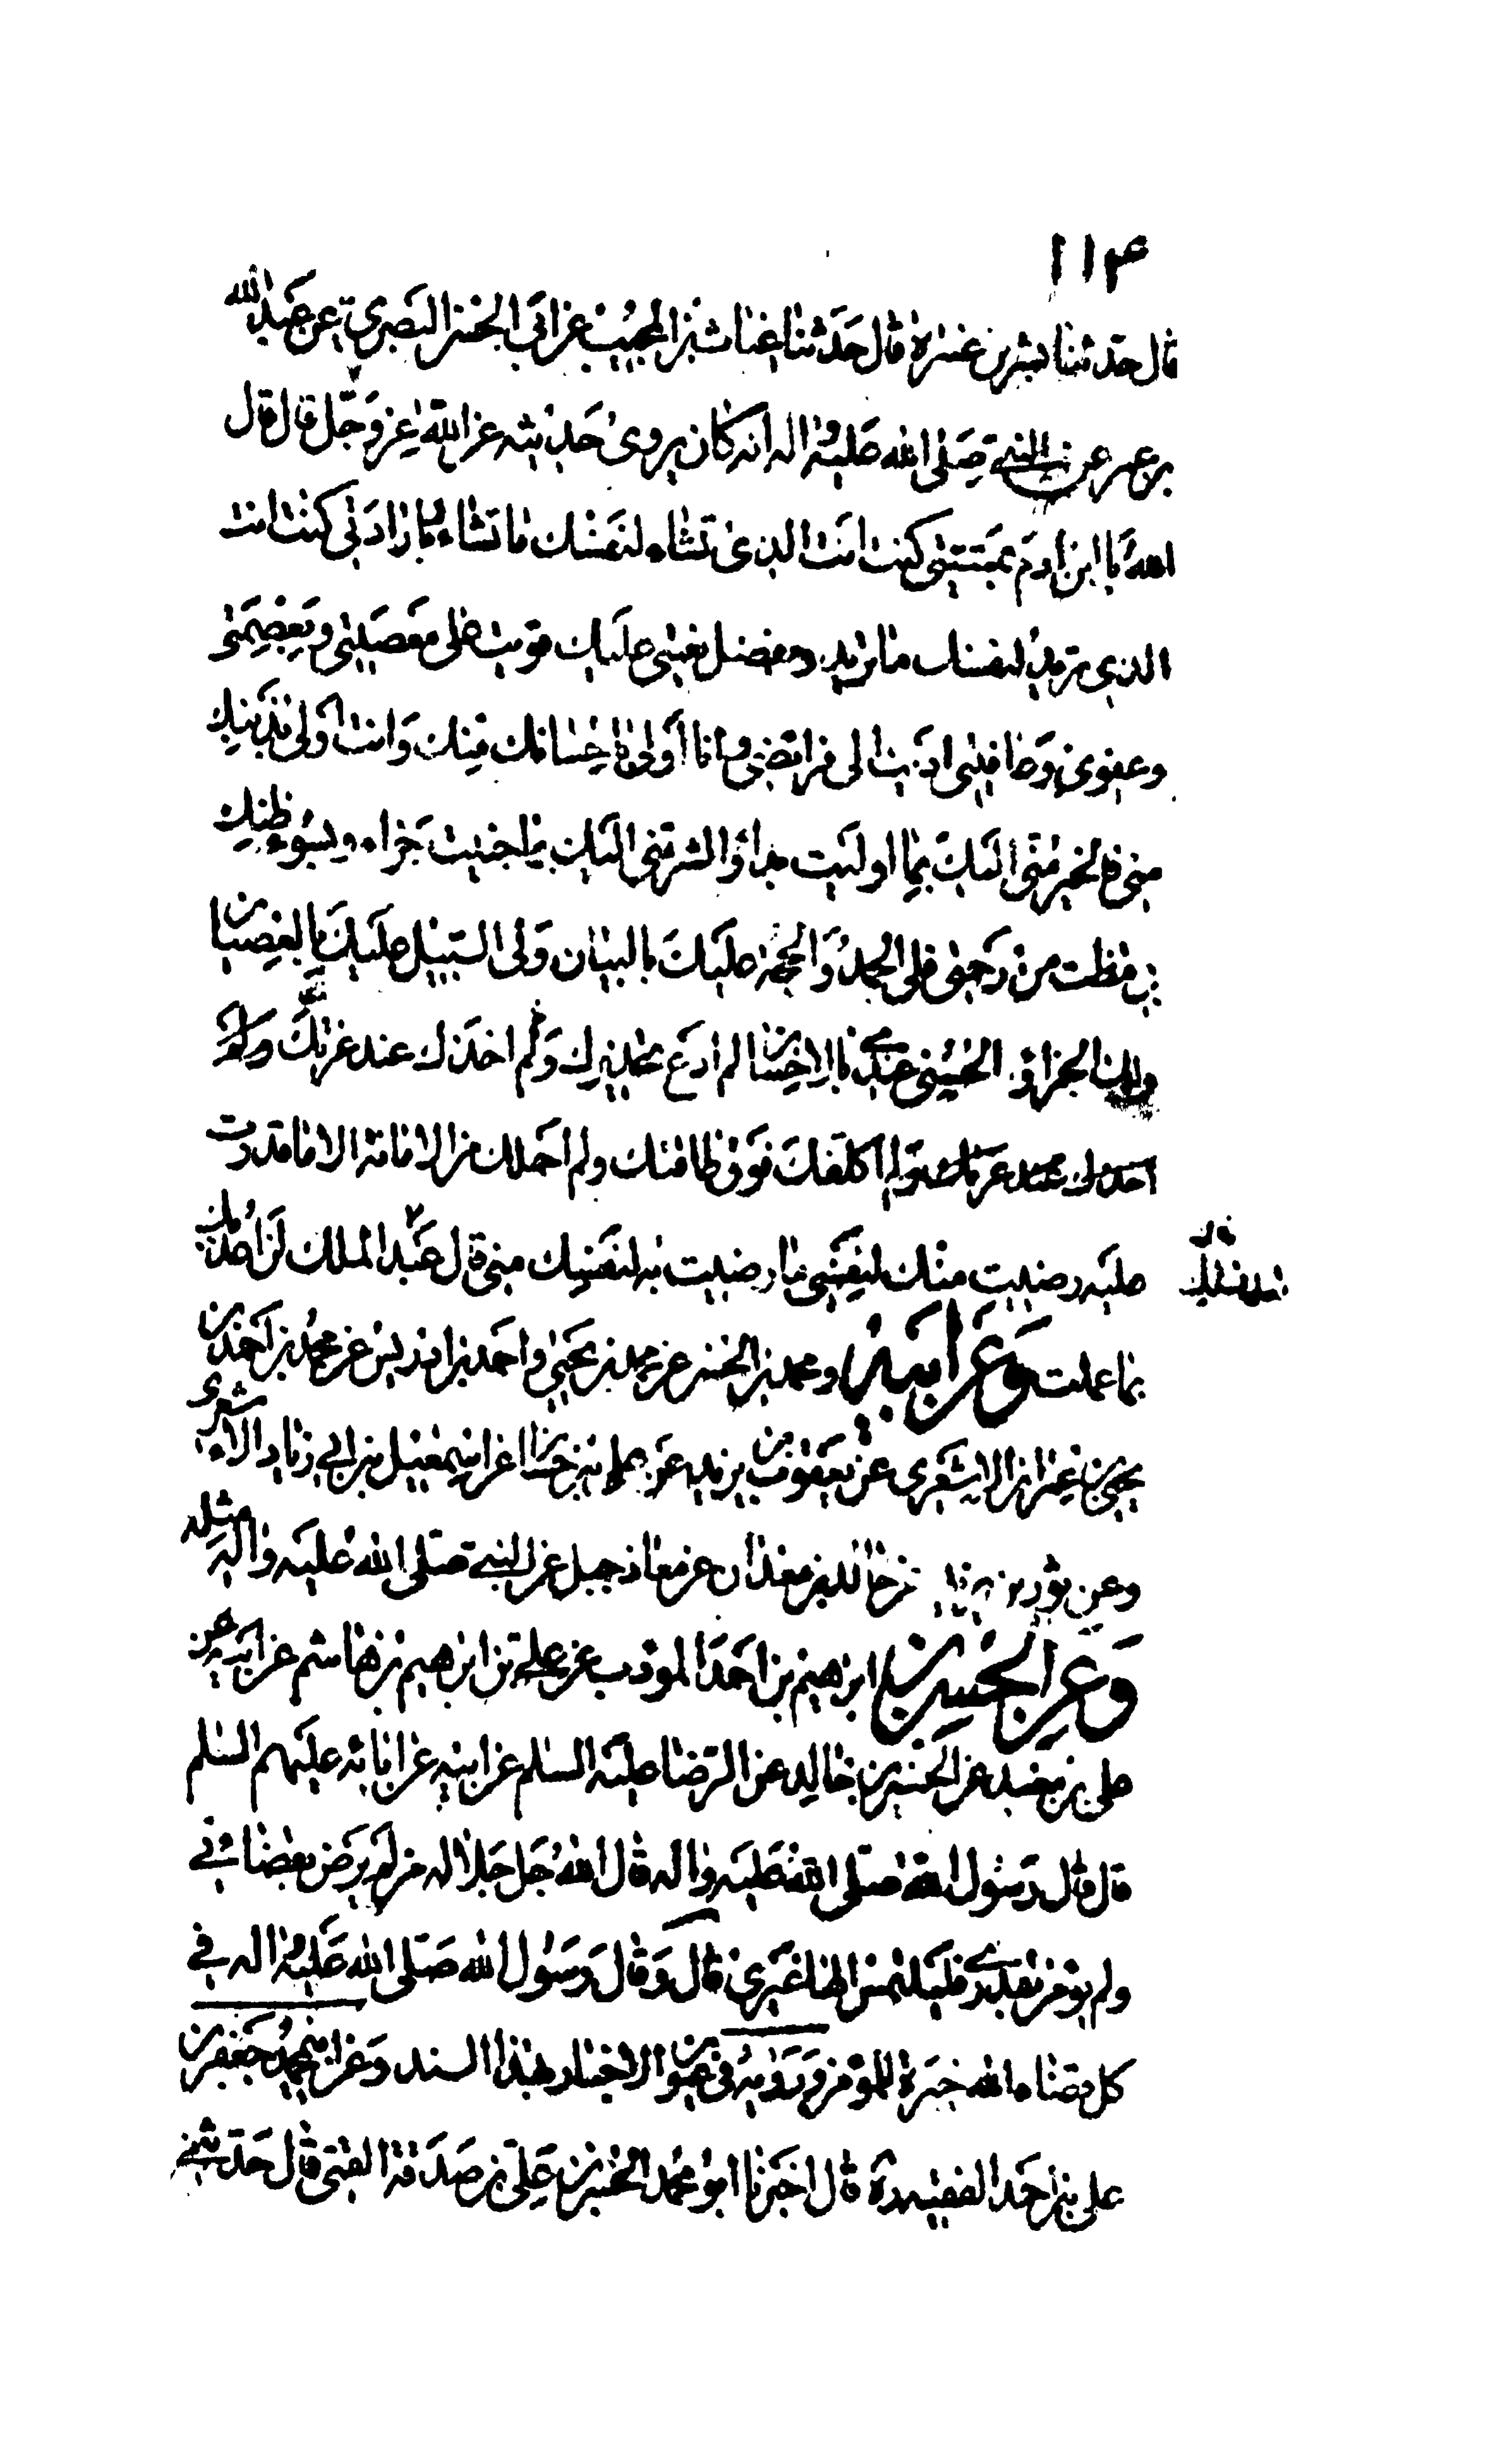 ١١٤
قال حدثنا بشر بن غنرة قال حدثنا عنابشر المجيب عن ابي الحسن البصري عن عبد الله
بن عمر عن النبي صلى الله عليه واله انه كان يروى حديثه عن الله عز وجل قال قال
الله يا ابن ادم بمشيتي كنت انت الذي تشاء لنفسك ما تشاء وبارادتي كنت انت
الذي تريد لنفسك ما تريد وبفضل نعمتي عليك قويت على معصيتي وبعصمتي
وعفوي وعافيتي اديت الى فرائضي وانا اولى باحسانك منك وانت اولى بذنبك
مني فالخير مني اليك بما اوليت بداء والشر مني اليك بما جنيت جزاء وبسوء ظنك
بي قنطت من رحمتي فلي الحمد والحجة عليك بالبيان ولي السبيل عليك بالعصيان
ولك الجزاء الحسنى عندي بالاحسان لم ادع تحذيرك ولم اخذك عند عزتك ولم
اخذك عند عزتك ولم اكلفك فوق طاقتك ولم احملك من الامانة الا ما قدرت
عليه رضيت منك لنفسي ما رضيت به لنفسك مني قال عبد الملك لن اعذبك الا
بما عملت وعن ابيه ومحمد بن الحسن عن محمد بن يحيى واحمد بن ادريس عن محمد بن احمد بن
يحيى بن عمران الاشعري عن يعقوب بن يزيد عن علي بن حسان عن اسمعيل بن ابي زياد الاشعري
وعن ثور بن يزيد عن خالد بن معدان عن معاذ جبل عن النبي صلى الله عليه واله مثله
وعن الحسين بن ابرهيم بن احمد المودب عن علي بن ابرهيم بن هاشم عن ابيه عن
علي بن معبد عن الحسين بن خالد عن الرضا عليه السلم عن ابيه عن ابائه عليهم السلم
قال قال رسول الله صلى الله عليه واله قال الله جل جلاله من لم يرض بقضائي
ولم يؤمن بقدري فليلتمس الها غيري قال وقال رسول الله صلى الله عليه واله في
كل قضاء الله خيرة للمؤمن ورواه في عيون الاخبار بهذا السند وعن ابي محمد جعفر بن
علي بن احمد الفقيه ره قال اخبرنا ابو محمد الحسن بن علي بن صدقة القمي قال حدثني